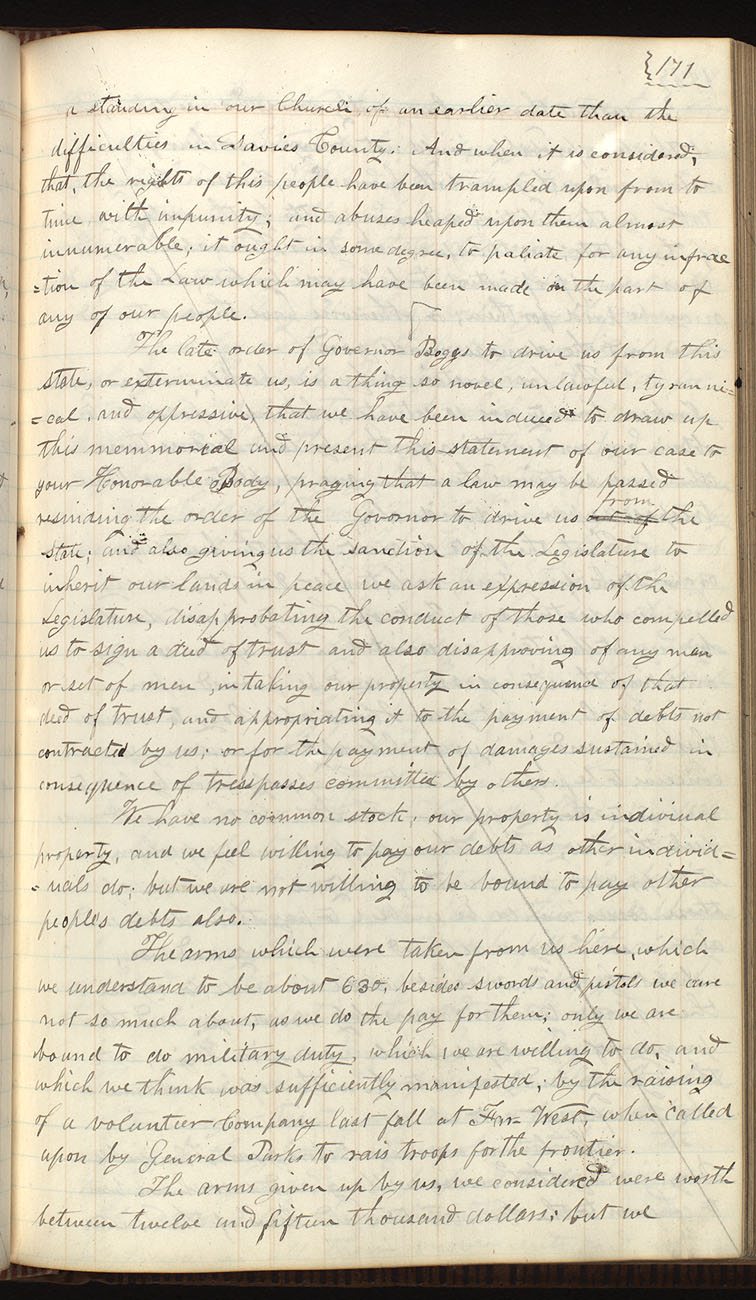 171
a standing in our Church, of an earlier date than the
difficulties in Davies County. And when it is considered,
that, the rights of this people have been trampled upon from to
time with impunity; and abuses heaped upon them almost
innumerable; it ought in some degree, to paliate for any infrac
=tion of the Law which may have been made on the part of
any of our people.
The late order of Governor Boggs to drive us from this
state, or exterminate us, is a thing so novel, unlawful, tyranni=
=cal, and oppressive, that we have been induced to draw up
this memmorial and present this statement of our case to
your Honorable Body, praying that a law may be passed
resinding the order of the Governor to drive us out of from the
state; and also giving us the sanction of the Legislature to
inherit our lands in peace we ask an expression of the
Legislature, disapprobating the conduct of those who compelled
us to sign a deed of trust and also disapproving of any man
or set of men, in taking our property in consequence of that
deed of trust, and appropriating it to the payment of debts not
contracted by us; or for the payment of damages sustained in
consequence of tresspasses committed by others.
We have no common stock; our property is indiviual
property, and we feel willing to pay our debts as other individ=
=uals do; but we are not willing to be bound to pay other
people's debts also.
The arms which were taken from us here, which
we understand to be about 630, besides swords and pistols we care
not so much about, as we do the pay for them; only we are
bound to do military duty, which we are willing to do, and
which we think was sufficiently manifested; by the raising
of a voluntier Company last fall at Far West, when called
upon by General Parks to rais troops for the frontier.
The arms given up by us, we considered were worth
between twelve and fifteen thousand dollars; but we